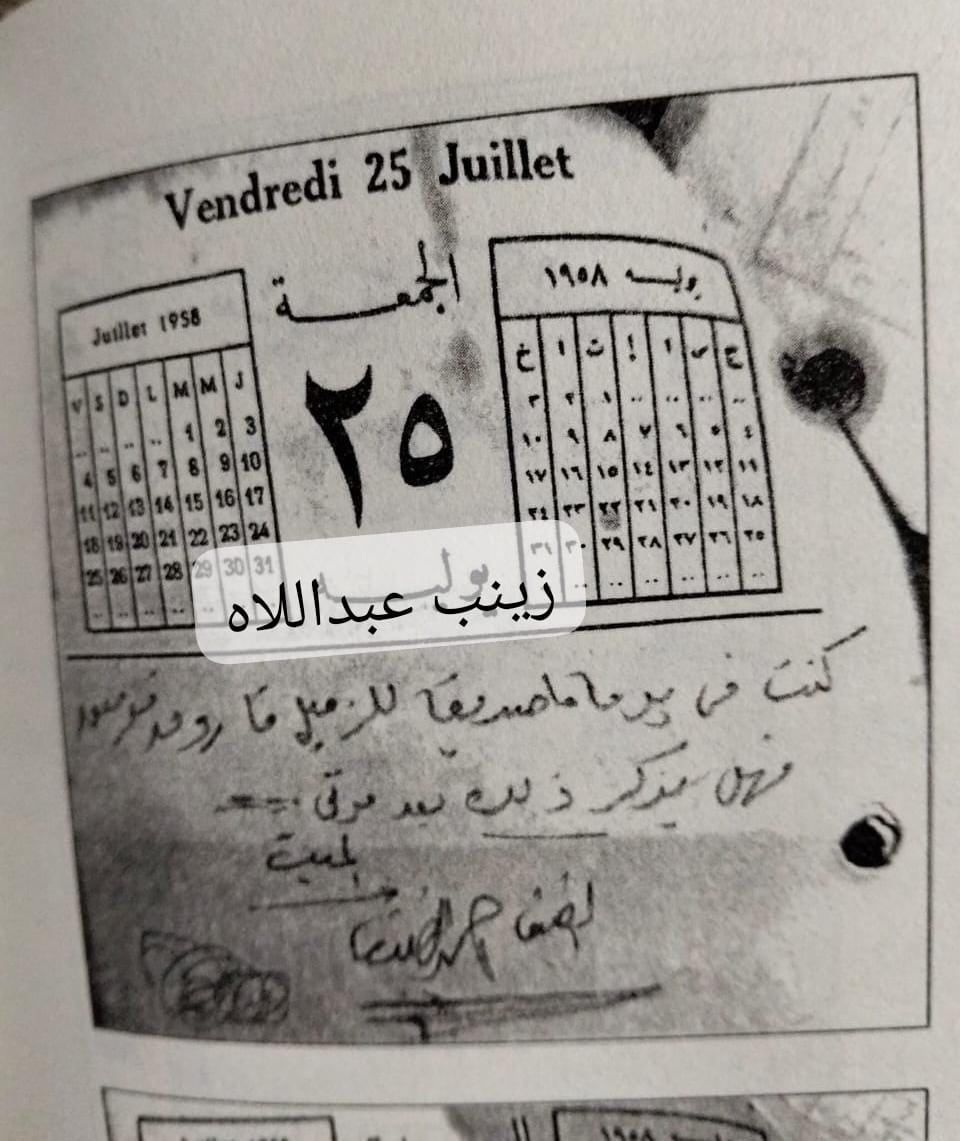 Vendredi 25 Juillet
الجمعة
٢٥
يوليه
Juillet 1958
V S D L M M J
.. .. .. .. 1 2 3
4 5 6 7 8 9 10
11 12 13 14 15 16 17
18 19 20 21 22 23 24
25 26 27 28 29 30 31
يوليه ١٩٥٨
ج س ا إ ث ا خ
.. .. .. .. ١ ٢ ٣
٤ ٥ ٦ ٧ ٨ ٩ ١٠
١١ ١٢ ١٣ ١٤ ١٥ ١٦ ١٧
١٨ ١٩ ٢٠ ٢١ ٢٢ ٢٣ ٢٤
٢٥ ٢٦ ٢٧ ٢٨ ٢٩ ٣٠ ٣١
زينب عبداللاه
كنت في يوم ما صديقا للزميل فاروق
فهل يذكر ذلك بعد موتى
١٩٥٨